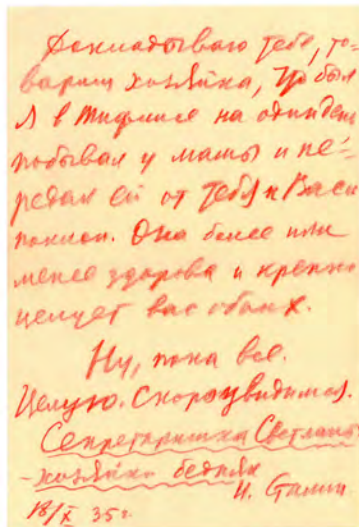 Докладываю тебе, то-
варищ хозяйка, что был
я в Тифлисе на один день
побывал у мамы и пе-
редал ей от тебя и Васи
поклон. Она более или
менее здорова и крепко
целует вас обоих.
Ну, пока все.
Целую. Скоро увидимся.
Секретаришка Светланы-
-хозяйки бедняк
И. Сталин
18/X 35 г.